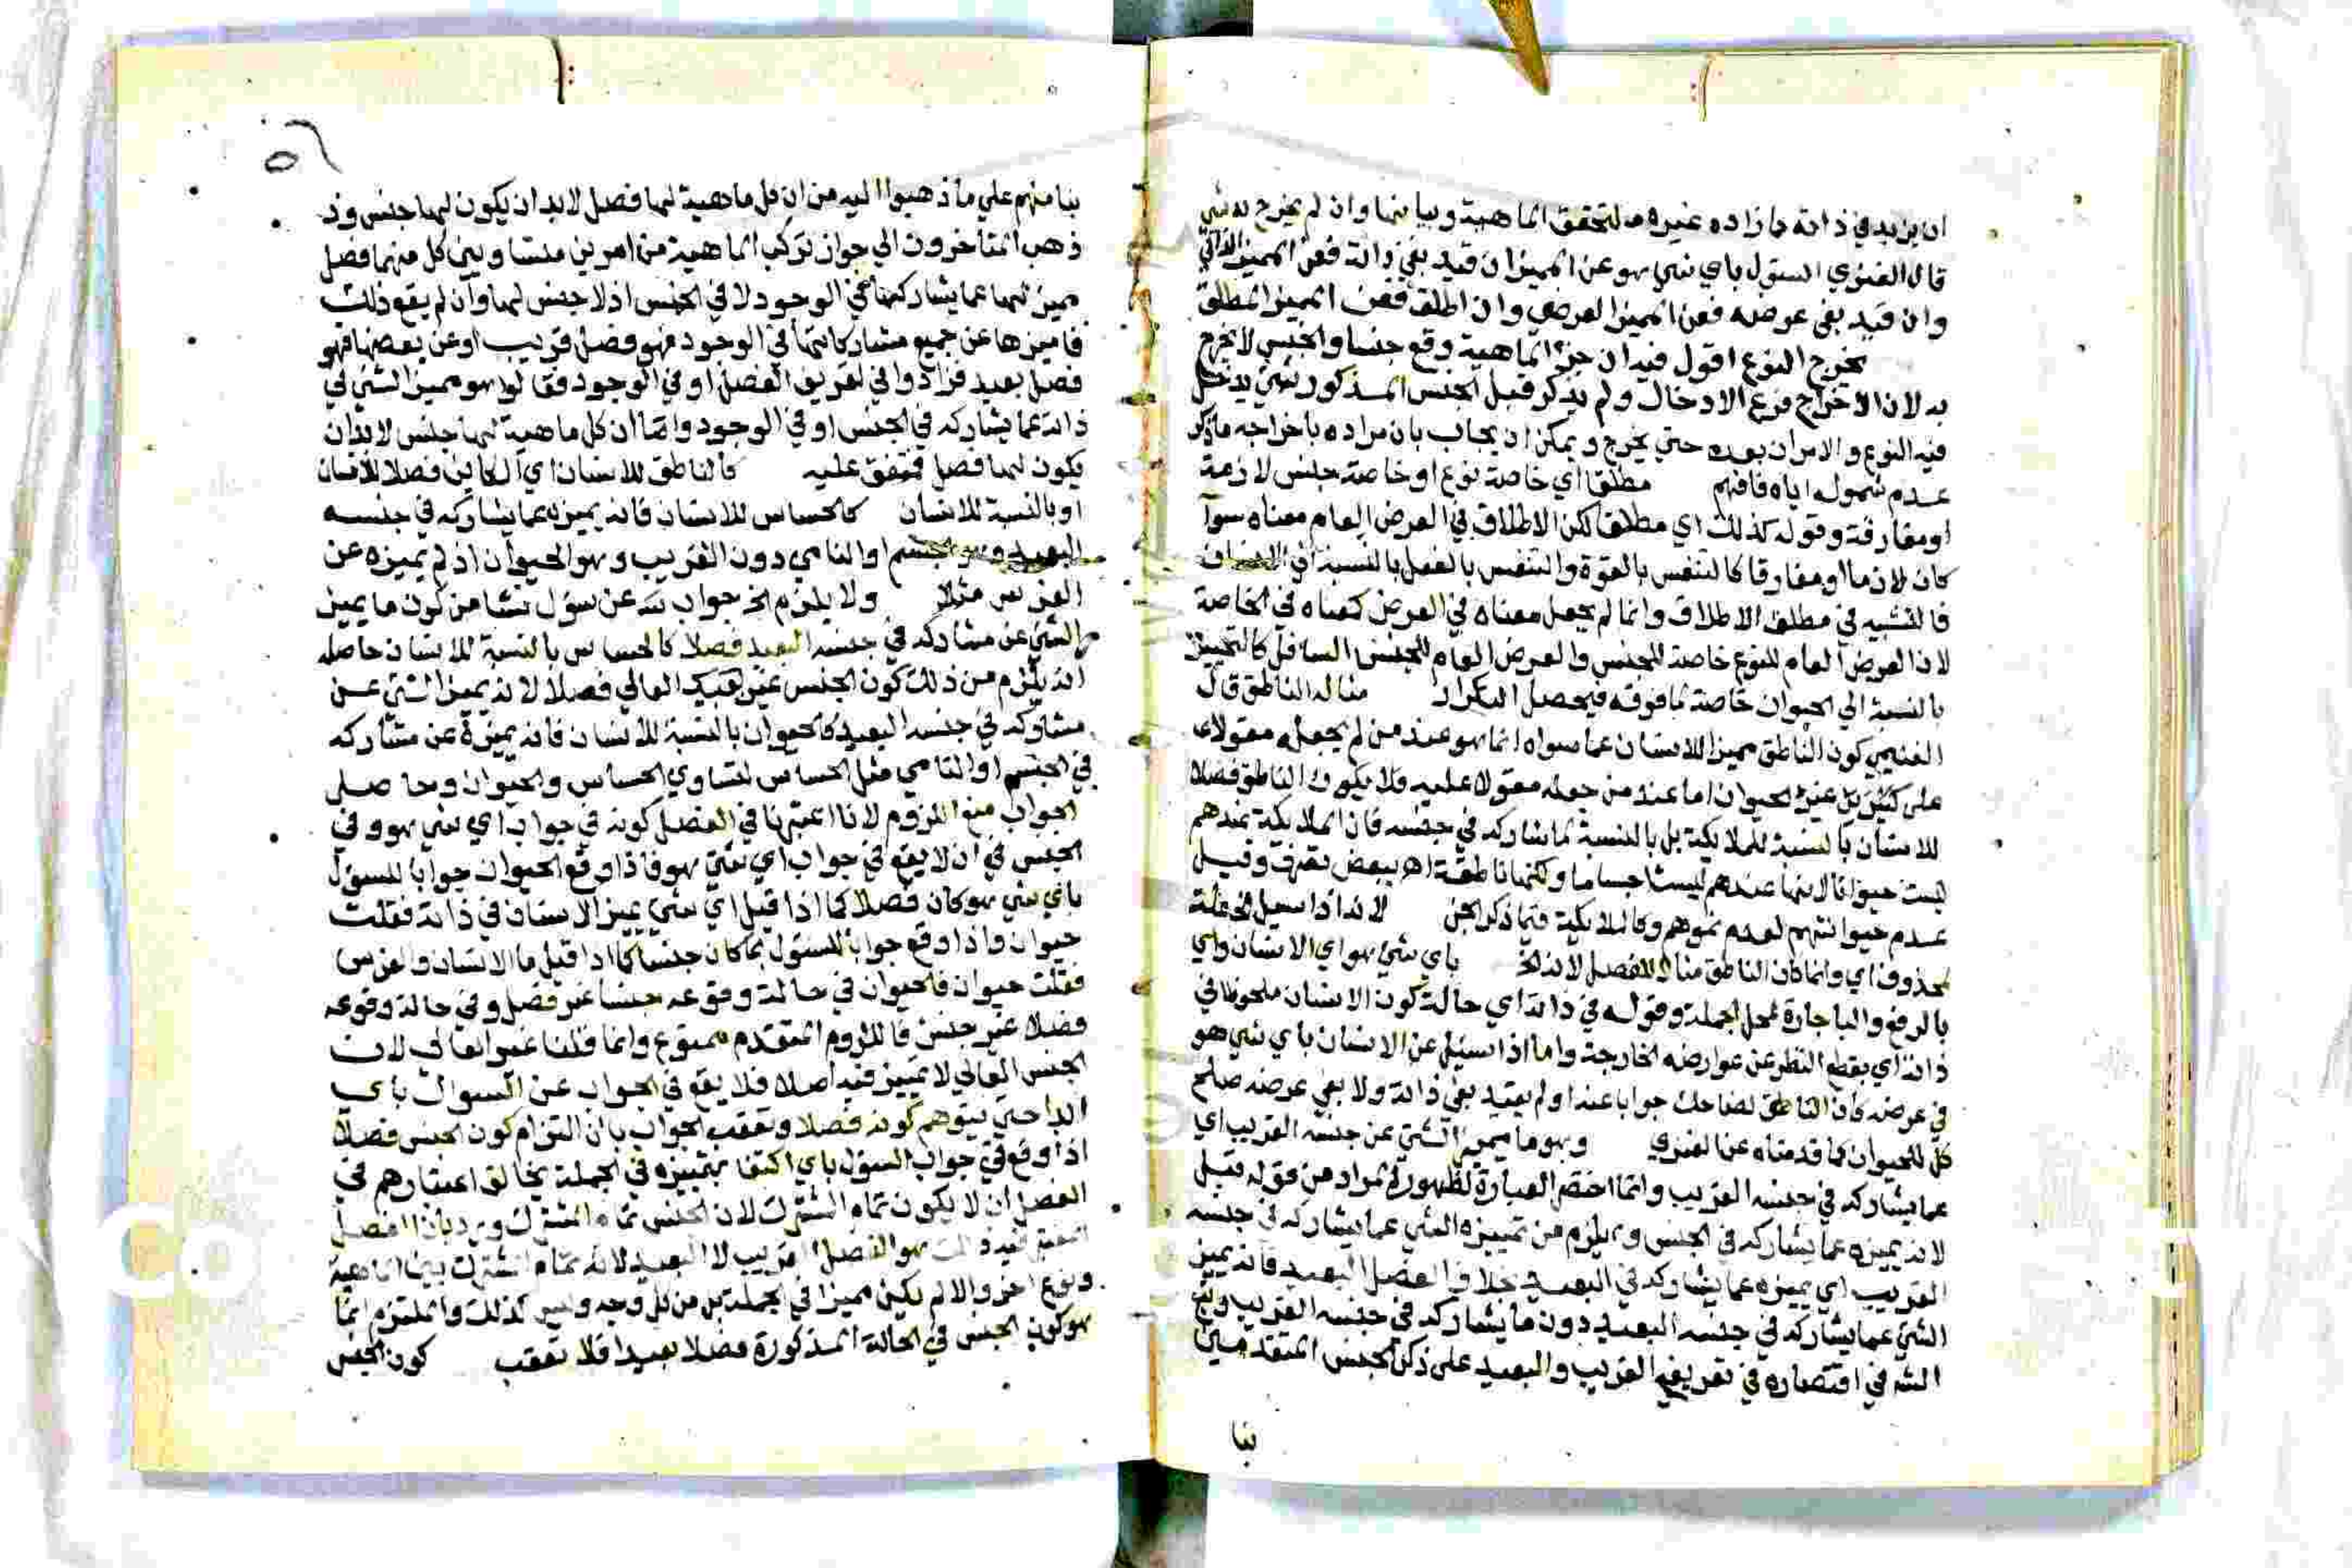 ان يزيد في ذاته ما زاده غيره مد لتحقق الماهية وبيانها وان لم يخرج به شي
قال الفنري السؤل باي شي هو عن المميز ان قيد بفي ذاته فعن المميز الذاتي
وان قيد بفي عرضه فعن المميز العرضي وان اطلق فعن المميز المطلق
يخرج النوع اقول فيه ان جزء الماهية وقع جنسا والجنس لا يخرج
به لان الاخراج فرع الادخال ولم يذكر قبل الجنس المذكور شي يدخل
فيه النوع والامران بعده حتي يخرج ويمكن ان يجاب بان مراده باخراجه ما ذكر
عدم شموله اياه فافهم مطلقا اي خاصة نوع او خاصة جنس لازمة
او مفارقة وقوله كذلك اي مطلقا لكن الاطلاق في العرض العام معناه سوآ
كان لازما او مفارقا كالمتنفس بالقوة والمتنفس بالفعل بالنسبة الي الانسان
فالتشبيه في مطلق الاطلاق وانما لم يجعل معناه في العرض كمعناه في الخاصة
لان العرض العام للنوع خاصة للجنس والعرض العام للجنس السافل كالتحيز
بالنسبة الي الحيوان خاصة لما فوقه فيحصل التكرار مثاله الناطق قال
الغنيمي كون الناطق مميزا للانسان عما سواه انما هو عند من لم يجعله مقولا
علي غير الحيوان اما عند من جعله مقولا عليه فلا يكون الناطق فصلا
للانسان بالنسبة للملايكة بل بالنسبة لما شاركه في جنسه فان الملايكة عندهم
ليست حيوانا لانها عندهم ليست اجساما ولكنها ناطقة اهـ ببعض تصرف وقيل
عدم حيوانتهم لعدم نموهم وكالملايكة فيما ذكر الجن لانه اذا سيل الخ علة
لمحذوف اي وانما كان الناطق مثالا للفصل لانه الخ باي شي هو اي الانسان واي
بالرفع والبا جارة لمحل الجملة وقوله في ذاته اي حالة كون الانسان ملحوظا في
ذاته اي بقطع النظر عن عوارضه الخارجة واما اذا سيل عن الانسان باي شي هو
في عرضه فان الناطق لضاحك جوابا عنه او لم يقيد بفي ذاته ولا بفي عرضه صلح
كل للجواب كما قدمناه عن الفنري وهو ما يميز الشي عن جنسه القريب اي
عما يشاركه في جنسه القريب وانما اختصر العبارة لظهور المراد من قوله قبل
لانه يميزه عما يشاركه في الجنس ويلزم من تمييزه الشي عما يشاركه في جنسه
القريب اي يميزه عما يشاركه في البعيد بخلاف الفصل البعيد فانه يميز
الشي عما يشاركه في جنسه البعيد دون ما يشاركه في جنسه القريب وتبع
الشه في اقتصاره في تعريفي القريب والبعيد علي ذكر الجنس المتقدمين
بنا
بنا منهم علي ما ذهبوا اليه من ان كل ماهية لها فصل لابد ان يكون لها جنس وقد
ذهب المتاخرون الي جواز تركب الماهية من امرين متساويين كل منهما فصل
مميز لها عما يشاركها في الوجود لا في الجنس اذ لا جنس لها وان لم يقع ذلك
فما ميزها عن جميع مشاركاتها في الوجود فهو فصل قريب او عن بعضها فهو
فصل بعيد فزادوا في تعريف الفصل او في الوجود فقالوا هو مميز الشي في
ذاته عما يشاركه في الجنس او في الوجود واما ان كل ماهية لها جنس لابد ان
يكون لها فصل فمتفق عليه كالناطق للانسان اي الكاين فصلا للانسان
او بالنسبة للانسان كالحساس للانسان فانه يميزه عما يشاركه في جنسه
البعيد وهو الجسم او النامي دون القريب وهو الحيوان اذ لم يميزه عن
الفرس مثلا ولا يلزم الخ جواب عن سؤل نشا من كون ما يميز
الشي عن مشاركه في جنسه البعيد فصلا كالحساس بالنسبة للانسان حاصله
انه يلزم من ذلك كون الجنس غير العالي فصلا لانه يميز الشي عن
مشاركه في جنسه البعيد كالحيوان بالنسبة للانسان فانه يميزه عن مشاركه
في الجسم او النامي مثل الحساس لتساوي الحساس والحيوان وحاصل
الجواب منع اللزوم لانا اعتبرنا في الفصل كونه في جواب اي شي هو وفي
الجنس في ان لا يقع في جواب اي شي هو فاذا وقع الحيوان جوابا للسؤل
باي شي هو كان فصلا كما اذا قيل اي شي يميز الانسان في ذاته فقلت
حيوان واذا وقع جوابا للسؤل بما كان جنسا كما اذا قيل ما الانسان والفرس
فقلت حيوان فالحيوان في حالة وقوعه جنسا غير فصل وفي حالة وقوعه
فصلا غير جنس فاللزوم المتقدم ممنوع وانما قلنا غير العالي لان
الجنس العالي لا تمييز فيه اصلا فلا يقع في الجواب عن السوال باي
ابدا حتي يتوهم كونه فصلا وتعقب الجواب بان التزام كون الجنس فصلا
اذا وقع في جواب السؤل باي اكتفا بتمييزه في الجملة يخالف اعتبارهم في
الفصل ان لا يكون تمام المشترك لان الجنس تمام المشترك ويرد بان الفصل
المعتبر فيه ذلك هو الفصل القريب لا البعيد لانه تمام المشترك بين الماهية
ونوع اخر والا لم يكن مميزا في الجملة بل من كل وجه وليس كذلك والملتزم انما
هو كون الجنس في الحالة المذكورة فصلا بعيدا فلا تعقب كون الجنس